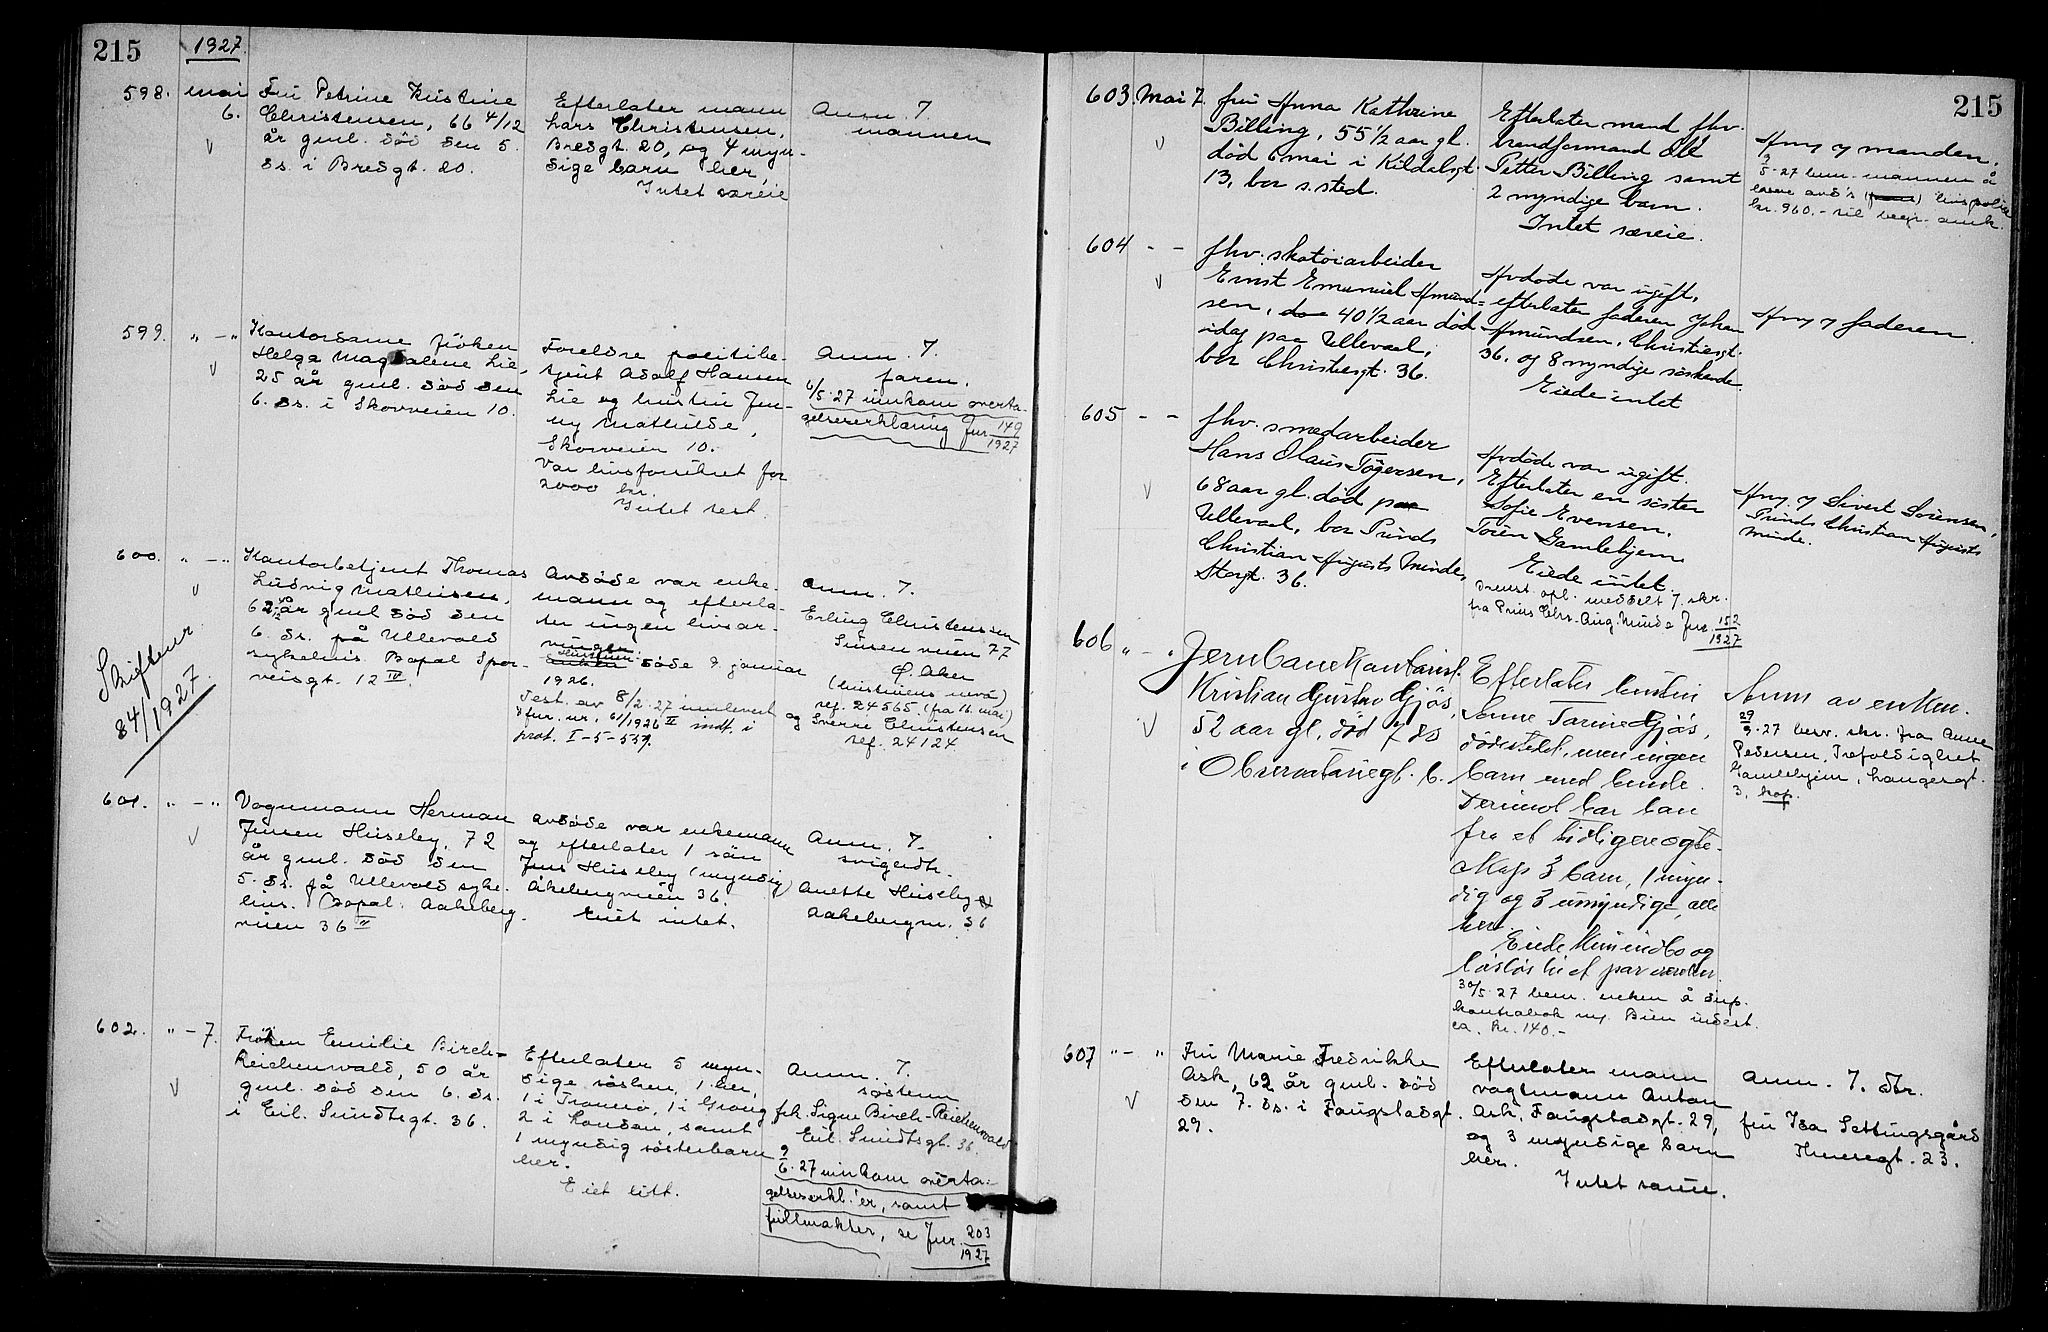 215
1927.
598. mai 6.
Fru Petrine Kristine
Christensen, 66 4/12
år gml. død den 5.
ds. i Bredgt. 20.
Efterlater mann
Lars Christensen,
Bredgt. 20, og 4 myn-
dige barn her.
Intet særeie
Anm. 7.
mannen
599. " - "
Kontordame fröken
Helga Magdalene Lie,
25 år gml. död den
6. ds. i Skovveien 10.
Foreldre politibe-
tjent Adolf Hansen
Lie og hustru Jen-
ny Mathilde,
Skovveien 10.
Var livsforsikret for
2000 kr.
Intet test.
Anm. 7.
faren.
6/5.27 innkom overta-
gelseserklæring Jur. 149
1927
600. " - "
Kontorbetjent Thomas
Ludvig Mathisen,
62 år gml död den
6. ds. på Ullevold
sykehus. Bopæl Spor-
veisgt. 12 IV.
Skiftejur.
84/1927.
Avdöde var enke-
mann og efterla-
ter ingen livsar-
vinger
Hustruen döde 9. januar
1926.
Test. av 8/2.27 innlevert
Jur. nr. 61/1926 II indt. i
prot. I-5-559.
Anm. 7.
Erling Christensen
Sinsen veien 77
Ö. Aker
(hustruens nevø)
ref. 24565. (fra 16. mai)
og Sverre Christensen
ref. 24124
601. " - "
Vognmann Herman
Jensen Huseby, 72
år gml. död den
5. ds. på Ullevold syke-
hus. Bopæl. Aakeberg-
veien 36 II
Avdöde var enkemann
og efterlater 1 sön
Jens Huseby (myndig)
Åkebergveien 36.
Eiet intet.
Anm. 7.
svigerdt.
Anette Huseby
Aakebergv. 36
602. " - 7.
Fröken Emilie Birch-
Reichenwald, 50 år
gml. död den 6. ds.
i Eil. Sundtsgt. 36.
Efterlater 5 myn-
dige søsken, 1 her,
1 i Tromsö, 1 i Grong
2 i London, samt
1 myndig sösterbarn
her.
Eiet litt.
Anm. 7.
søsteren
frk. Signe Birch-Reichenwald
Eil. Sundtsgt. 36.
9/6.27 innkom overta-
gelseserkl.'er, samt
fullmakter, se Jur. 203
1927
215
603. Mai 7.
fru Anna Kathrine
Billing, 55 1/2 aar gl.
død 6 mai i Kildalsgt
13, bor s. sted.
Efterlater mand fhv.
brandformand Ole
Petter Billing samt
2 myndige barn.
Intet særeie.
Anm. 7 manden.
5.27 bem. mannen å
heve avd's livspolise
kr. 960.- til begr. omk.
604 - -
fhv. skotøiarbeider
Ernst Emanuel Amund-
sen, 40 1/2 aar død
idag paa Ullevaal,
bor Christiesgt. 36.
Avdøde var ugift,
efterlater faderen Johan
Amundsen, Christiesgt.
36, og 8 myndige søskende.
Eiede intet
Anm. 7 faderen.
605 - -
fhv. smedarbeider
Hans Olaus Tögersen,
68 aar gl. død paa
Ullevaal, bor Prinds
Christian Augusts Minde,
Storgt. 36.
Avdøde var ugift.
Efterlater en søster
Sofie Evensen,
Töien Gamlehjem
Eiede intet.
opl. meddelt 7. skr.
fra Prins Chrs. Aug. Minde Jur. 152
1927
Anm. 7 Sivert Sörensen,
Prinds Christian Augusts
Minde.
606 " - "
Jernbanekontorist.
Kristian Gustav Gjös,
52 aar gl., död 7 ds
i Observatoriegt. 6.
Efterlater hustru
Anne Tarine Gjös,
dödsstedet, men ingen
barn med hende.
Derimot har han
fra et tidligere egte-
skap 3 barn, 1 myn-
dig og 3 umyndige, alle
her.
Eiede kun indbo og
lösöre til et par
30/5.27 bem. enken å disp.
kontrabok ny. Bien indest.
ca. kr. 140.-
Anm av enken.
29/9.27 besv. skr. fra Anne
Pedersen, Trefoldighet
Gamlehjem, Langesgt.
3. kop.
607 " - "
Fru Marie Fredrikke
Ask, 62 år gml. död
den 7. ds. i Fougstadgt.
29.
Efterlater mann
vagtmann Anton
Ask, Fougstadgt. 29,
og 3 myndige barn
her.
Intet særeie.
Anm. 7. dtr.
fru Isa Settingsgård
Thereses­gt. 23.